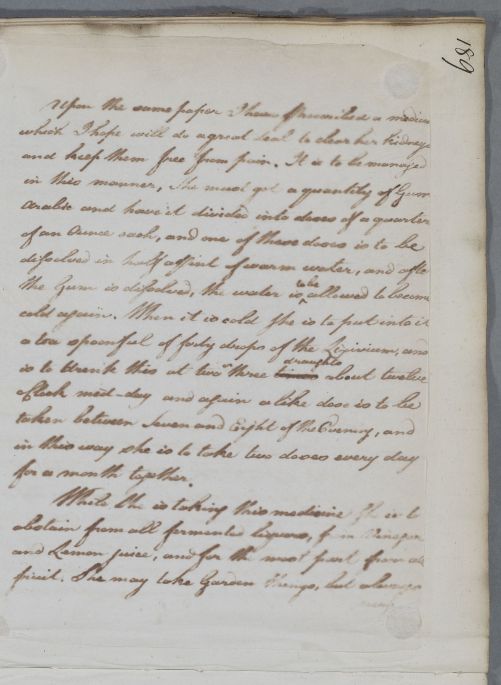 189
Upon the same paper I have prescribed a medicine
which I hope will do a great deal to clear her Kidneys
and keep them free from pain. It is to be managed
in this manner, She must get a quantity of Gum
Arabic and have it divided into doses of a quarter
of an Ounce each, and one of these doses is to be
dissolved in half a pint of warm water, and after
the Gum is dissolved, the water is to be allowed to become
cold again. When it is cold she is to put into it
a tea spoonful or forty drops of the Lixivium, and
is to drink this at two or three times draughts about twelve
oClock mid-day and again a like dose is to be
taken between Seven and Eight of the Evening, and
in this way she is to take two doses every day
for a month together.
While She is taking this medicine She is to
abstain from all fermented liquors, from Vinegar
and Lemon juice, and for the most part from all
fruit. She may take Garden things, but always